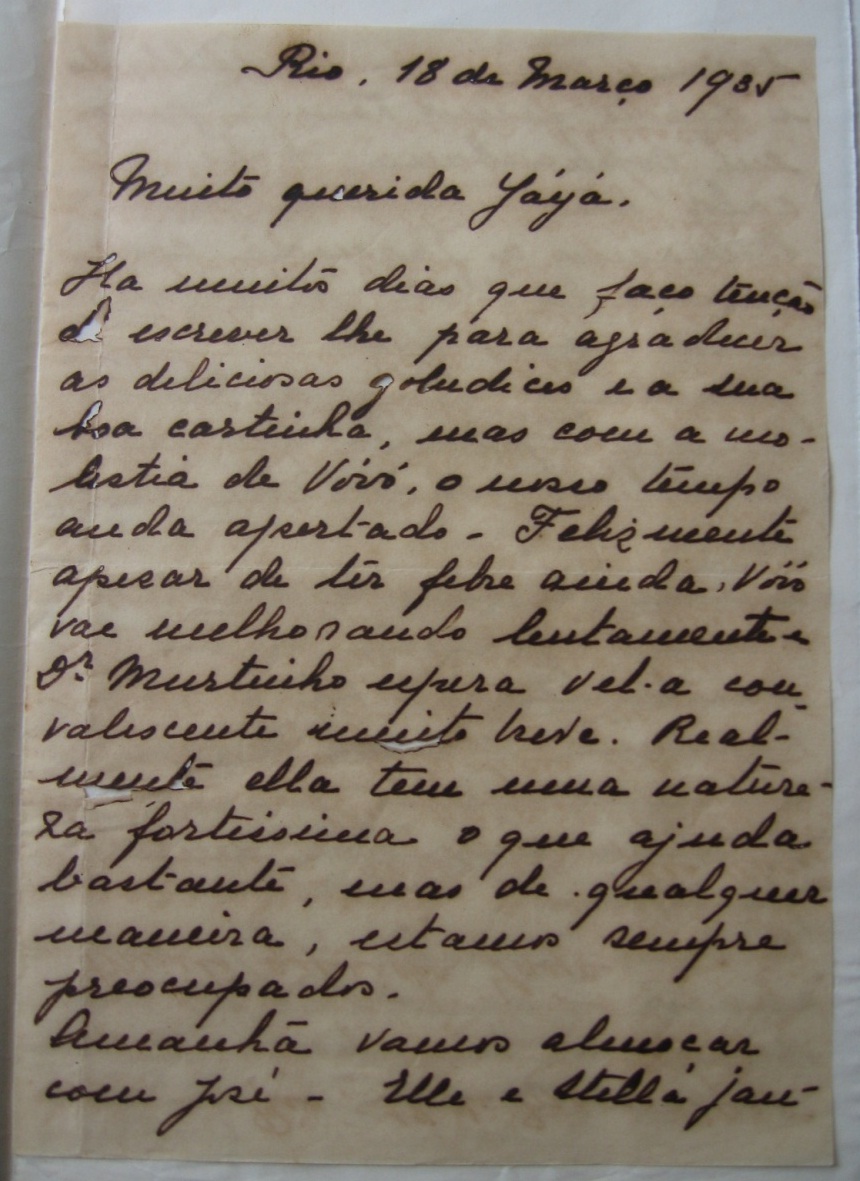 Rio, 18 de Março 1935
Muito querida Yáyá.
Ha muitos dias que faço tenção
de escrever lhe para agradecer
as deliciosas goludices e a sua
boa cartinha, mas com a mo-
lestia de Vóvó, o nosso tempo
anda apertado - Felizmente
apezar de têr febre ainda, Vóvó
vae melhorando lentamente e
Dr. Murtinho espera vel-a con
valescente muito breve. Real-
mente ella tem uma nature-
za fortissima o que ajuda
bastante, mas de qualquer
maneira, estamos sempre
preocupados.
Amanhã vamos almoçar
com José - Elle e Stella jan-